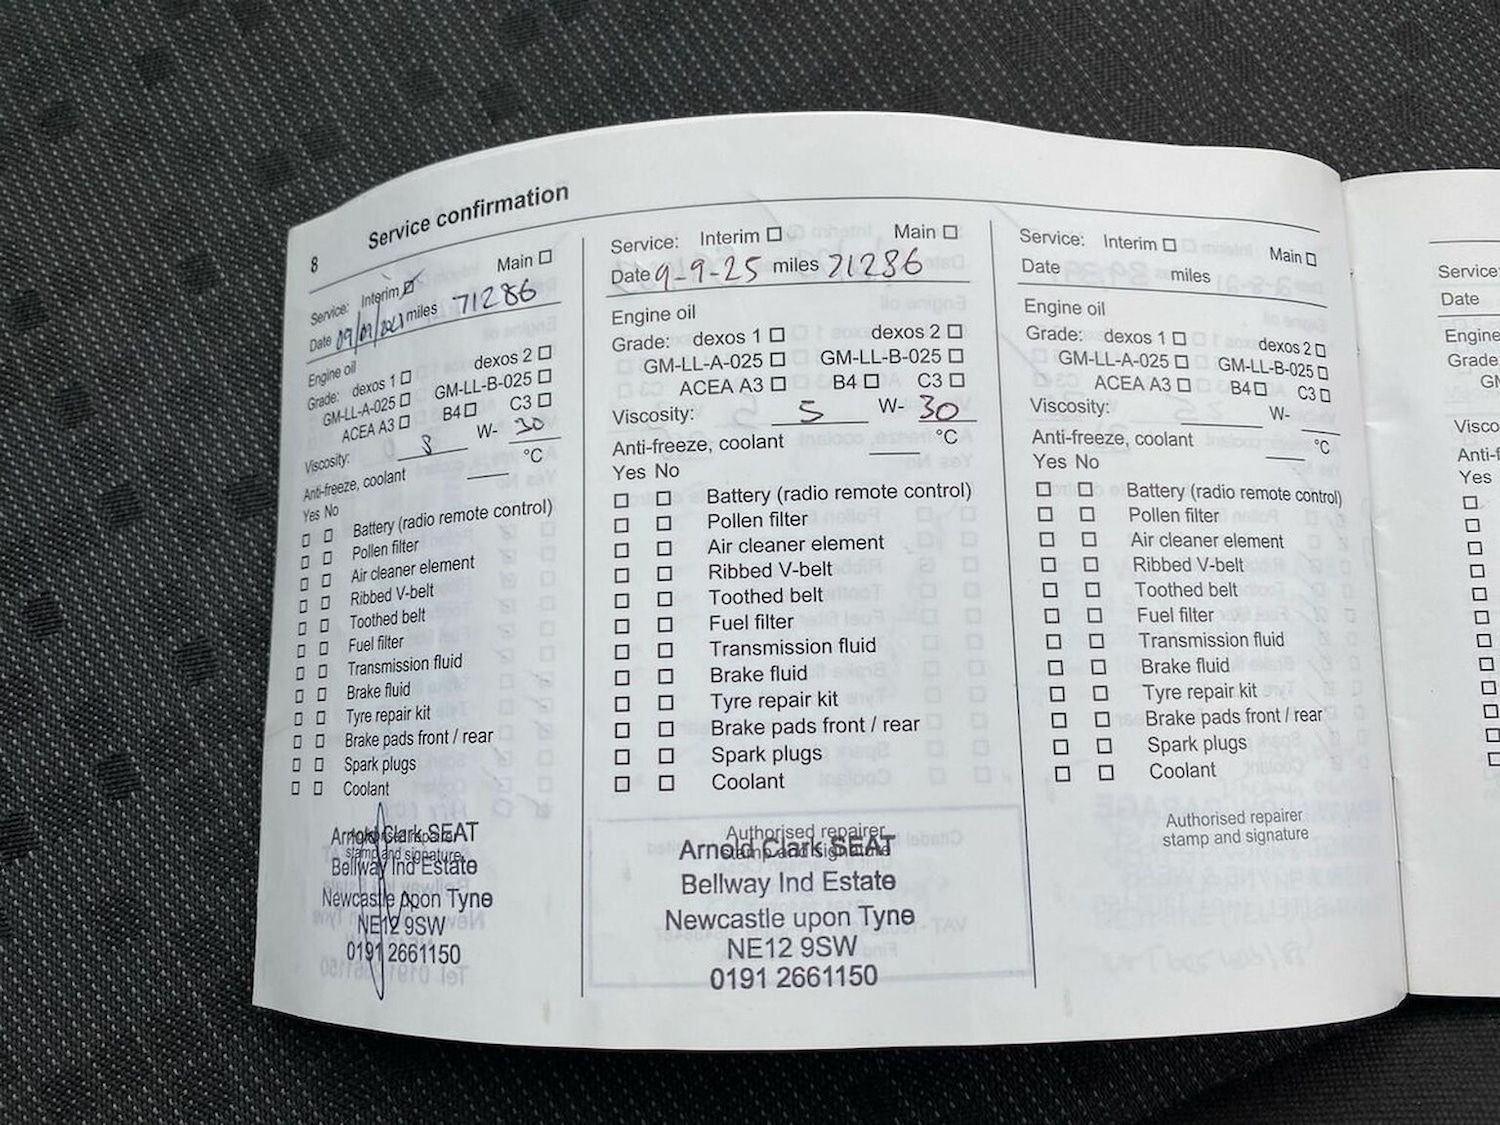 8 Service confirmation
Service: Interim Main
Date 09/09/2021 miles 71286
Engine oil
Grade: dexos 1 dexos 2
GM-LL-A-025 GM-LL-B-025
ACEA A3 B4 C3
Viscosity: W- 30
Anti-freeze, coolant °C
Yes No
Battery (radio remote control)
Pollen filter
Air cleaner element
Ribbed V-belt
Toothed belt
Fuel filter
Transmission fluid
Brake fluid
Tyre repair kit
Brake pads front / rear
Spark plugs
Coolant
Authorised repairer
stamp and signature
Arnold Clark SEAT
Bellway Ind Estate
Newcastle upon Tyne
NE12 9SW
0191 2661150
Service: Interim Main
Date 9-9-25 miles 71286
Engine oil
Grade: dexos 1 dexos 2
GM-LL-A-025 GM-LL-B-025
ACEA A3 B4 C3
Viscosity: 5 W- 30
Anti-freeze, coolant °C
Yes No
Battery (radio remote control)
Pollen filter
Air cleaner element
Ribbed V-belt
Toothed belt
Fuel filter
Transmission fluid
Brake fluid
Tyre repair kit
Brake pads front / rear
Spark plugs
Coolant
Authorised repairer
stamp and signature
Arnold Clark SEAT
Bellway Ind Estate
Newcastle upon Tyne
NE12 9SW
0191 2661150
Service: Interim Main
Date miles
Engine oil
Grade: dexos 1 dexos 2
GM-LL-A-025 GM-LL-B-025
ACEA A3 B4 C3
Viscosity: W-
Anti-freeze, coolant °C
Yes No
Battery (radio remote control)
Pollen filter
Air cleaner element
Ribbed V-belt
Toothed belt
Fuel filter
Transmission fluid
Brake fluid
Tyre repair kit
Brake pads front / rear
Spark plugs
Coolant
Authorised repairer
stamp and signature
Service:
Date
Engine
Grade
Yes